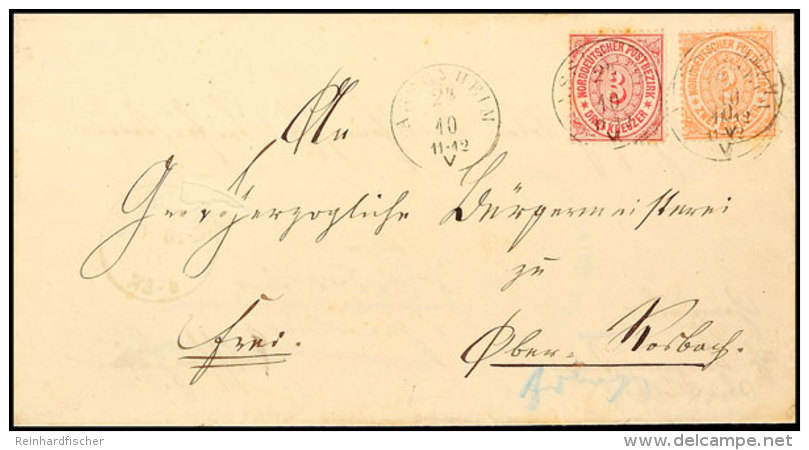 NORDDEUTSCHER POSTBEZIRK
3
DREI KREUZER
NORDDEUTSCHER POSTBEZIRK
2
10
11-12
V
An
Großherzogliche Bürgermeisterei
zu
Frei.
Ober-Rosbach.
Reinhardfischer
delcampe.net